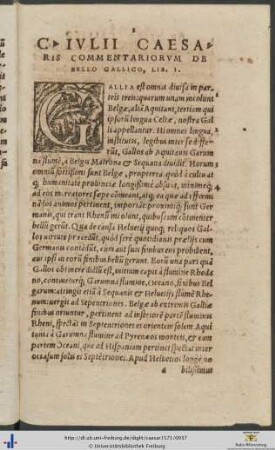 C. IVLII CAESA-
RIS COMMENTARIORVM DE
BELLO GALLICO, LIB. I.
GALLIA est omnis diuisa in par-
tes treis: quarum unam incolunt
Belgæ, aliā Aquitani, tertiam qui
ipsorū lingua Celtæ, nostra Gal
li appellantur. Hi omnes lingua,
institutis, legibus inter se diffe-
runt. Gallos ab Aquitanis Garum
na flumē, à Belgis Matrona & Sequana diuidit. Horum
omniū fortissimi sunt Belgæ, propterea quòd à cultu at
que humanitate prouinciæ longissimè absunt, minimeq́;
ad eos mercatores sæpe commeant, atq; ea quæ ad effemi
nādos animos pertinent, important: proximiq; sunt Ger
manis, qui trans Rhenū incolunt, quibuscum cōtinenter
bellū gerūt. Qua de causa Heluetij quoq; reliquos Gal-
los uirtute præcedūt, quòd ferè quotidianis prælijs cum
Germanis contēdūt, cum aut suis finibus eos prohibent,
aut ipsi in eorū finibus bellū gerunt. Eorū una pars quā
Gallos obtinere dictū est, initium capit à flumine Rhoda
no, contineturq; Garumna flumine, Oceano, finibus Bel
garum: attingit etiā à Sequanis & Heluetijs flumē Rhe-
num: uergit ad Septentriones. Belgæ ab extremis Galliæ
finibus oriuntur, pertinent ad inferiorē partē fluminis
Rheni, spectāt in Septentriones et orientem solem. Aqui
tania à Garumna flumine ad Pyrenæos montes, et eam
partem Oceani, quæ ad Hispaniam pertinet spectat inter
occasum solis et Septētriones. Apud Heluetios longè no
a bilissimus
http://dl.ub.uni-freiburg.de/diglit/caesar1571/0037
© Universitätsbibliothek Freiburg